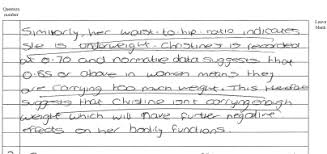 Question
number
Leave
blank
Similarly, her waist-to-hip ratio indicates
she is underweight. Christine's is recorded
at 0.70 and normative data suggests that
0.85 or above in women means they
are carrying too much weight. This therefore
suggests that Christine isn't carrying enough
weight which will have further negative
effects on her bodily functions.